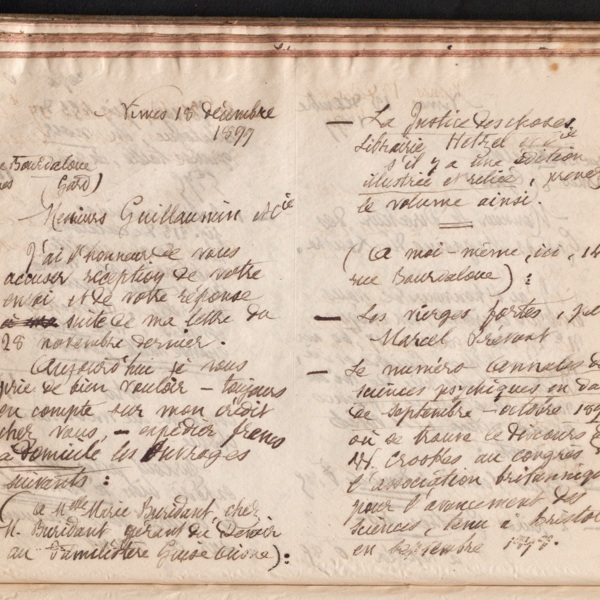 Nimes 18 décembre
1899
Bourdaloue
Gard)
Messieurs Guillaumin et Cie
J'ai l'honneur de vous
accuser réception de votre
envoi et de votre réponse
suite de ma lettre du
28 novembre dernier.
Aujourd'hui je vous
prie de bien vouloir – toujours
en compte sur mon crédit
chez vous, – expédier franco
à domicile les ouvrages
suivants :
(à Mlle Marie Buridant, chez
M. Buridant gérant du Devoir
au Familistère Guise Aisne) :
— La Justice des choses
Librairie Hetzel et Cie
s'il y a une édition
illustrée et reliée, prenez
le volume ainsi.
(à moi-même, ici, 14
rue Bourdaloue) :
— Les vierges fortes, p
Marcel Prévost
— Le numéro Annales d
sciences psychiques en da
de septembre – octobre 189
où se trouve le discours d
W. Crookes au congrès d
l'association britannique
pour l'avancement des
sciences, tenu à Bristol
en septembre 1898.